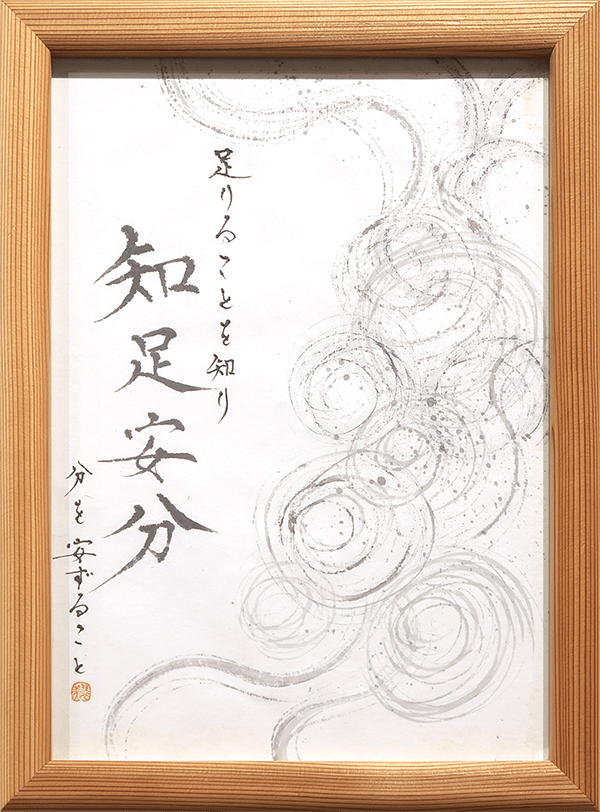 足りることを知り
知足安分
分を安ずること